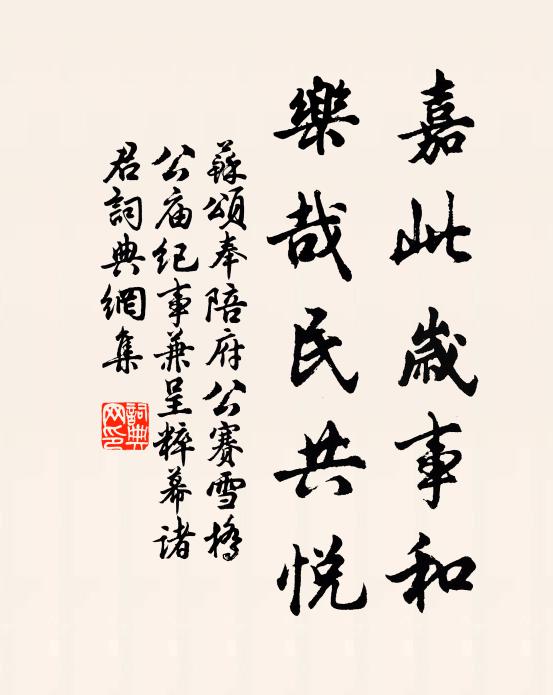 嘉此歲事和
樂哉民共悅
蘇頌奉陪府公賽雪橋
公庙纪事兼呈粹幕諸
君詞典網集
詞典网印